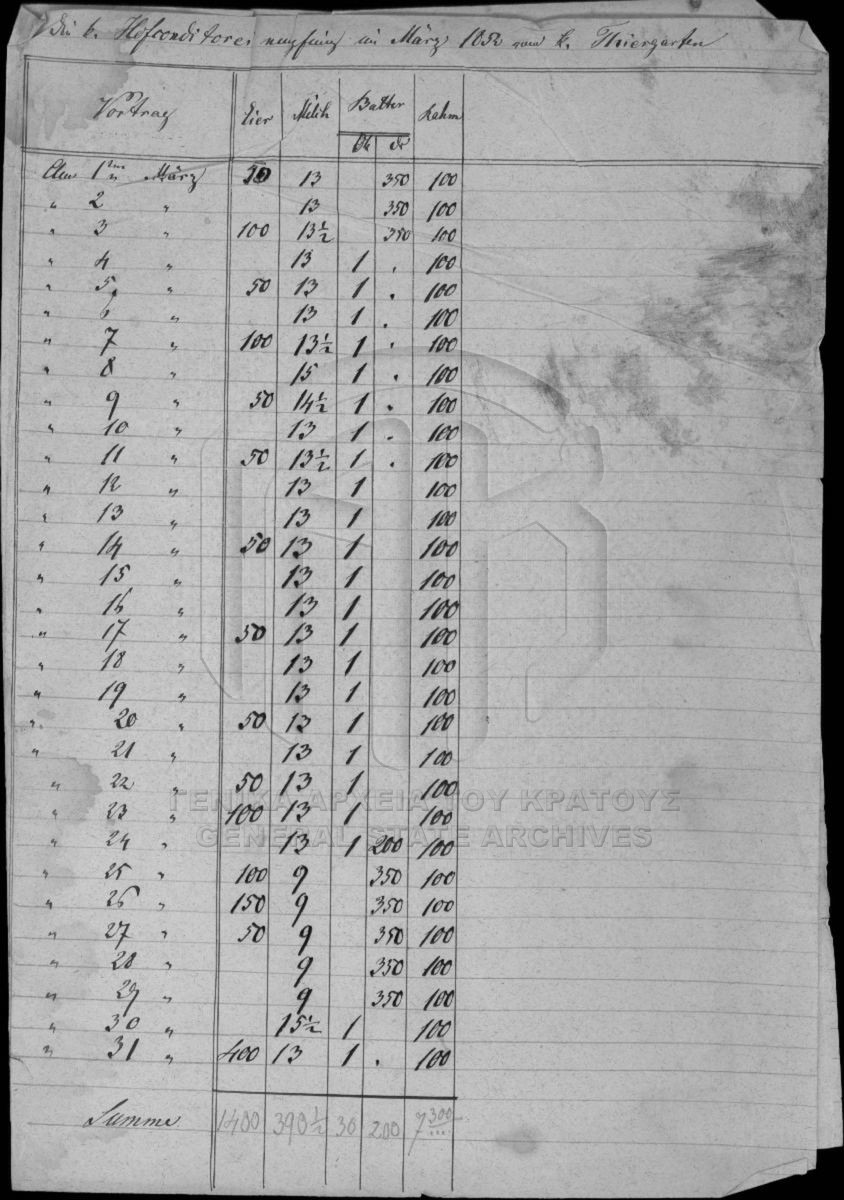 Die k. Hofconditorei empfing im März 1852 vom k. Thiergarten
Vortrag Eier Milch Butter Rahm
Ok dr
Am 1ten März 50 13 350 100
" 2 " 13 350 100
" 3 " 100 13½ 350 100
" 4 " 13 1 . 100
" 5 " 50 13 1 . 100
" 6 " 13 1 . 100
" 7 " 100 13½ 1 . 100
" 8 " 15 1 . 100
" 9 " 50 14½ 1 . 100
" 10 " 13 1 . 100
" 11 " 50 13½ 1 . 100
" 12 " 13 1 100
" 13 " 13 1 100
" 14 " 50 13 1 100
" 15 " 13 1 100
" 16 " 13 1 100
" 17 " 50 13 1 100
" 18 " 13 1 100
" 19 " 13 1 100
" 20 " 50 13 1 100
" 21 " 13 1 100
" 22 " 50 13 1 100
" 23 " 100 13 1 100
" 24 " 13 1 200 100
" 25 " 100 9 350 100
" 26 " 150 9 350 100
" 27 " 50 9 350 100
" 28 " 9 350 100
" 29 " 9 350 100
" 30 " 15½ 1 100
" 31 " 400 13 1 . 100
Summe 1400 390½ 30 200 7 300
ΓΕΝΙΚΑ ΑΡΧΕΙΑ ΤΟΥ ΚΡΑΤΟΥΣ
GENERAL STATE ARCHIVES